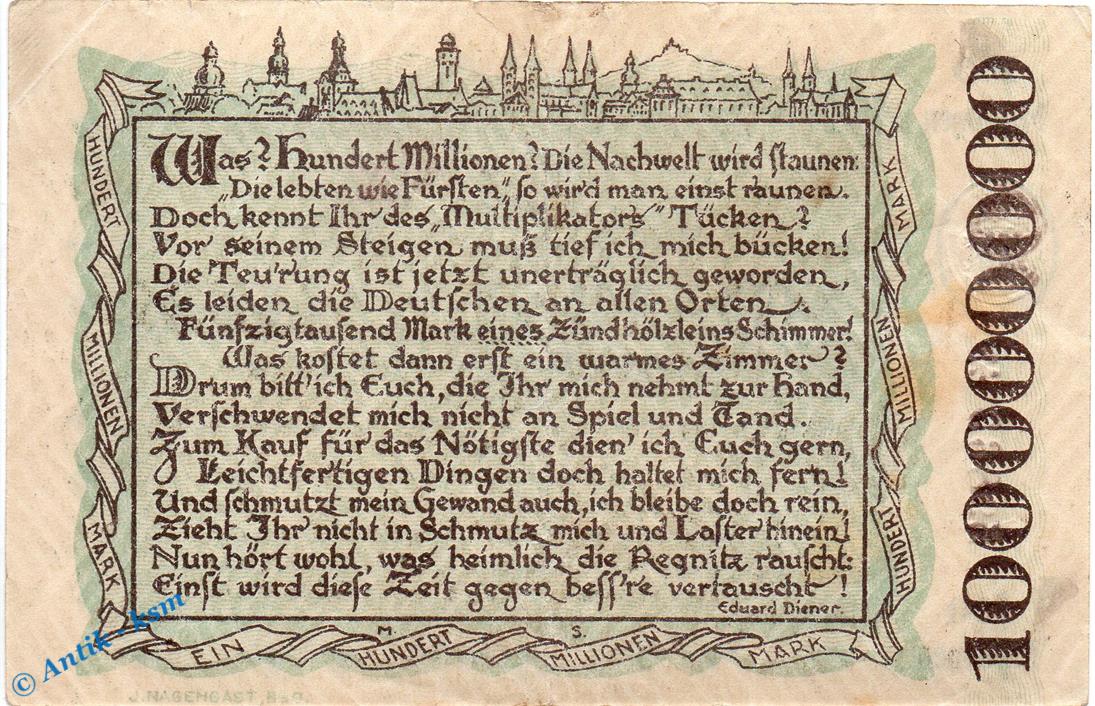 Was? Hundert Millionen? Die Nachwelt wird staunen:
„Die lebten wie Fürsten", so wird man einst raunen.
Doch kennt Ihr des „Multiplikators" Tücken?
Vor seinem Steigen muß tief ich mich bücken!
Die Teu'rung ist jetzt unerträglich geworden,
Es leiden die Deutschen an allen Orten.
Fünfzigtausend Mark eines Zündhölzleins Schimmer!
Was kostet dann erst ein warmes Zimmer?
Drum bitt' ich Euch, die Ihr mich nehmt zur Hand,
Verschwendet mich nicht an Spiel und Tand.
Zum Kauf für das Nötigste dien' ich Euch gern,
Leichtfertigen Dingen doch haltet mich fern!
Und schmutzt mein Gewand auch, ich bleibe doch rein,
Zieht Ihr nicht in Schmutz mich und Laster hinein!
Nun hört wohl, was heimlich die Regnitz rauscht:
Einst wird diese Zeit gegen bess're vertauscht!
Eduard Diener.
HUNDERT
MILLIONEN
MARK
M. S.
EIN HUNDERT MILLIONEN MARK
HUNDERT
MILLIONEN
MARK
100000000
J. NAGENGAST, B-g.
© Antik - ksm